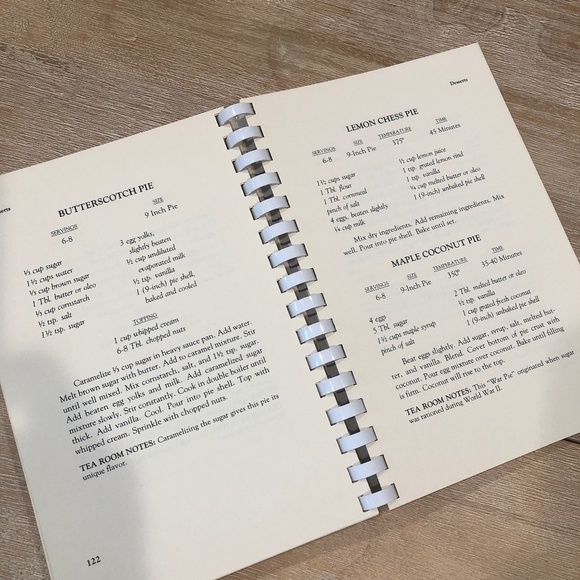 erts
BUTTERSCOTCH PIE
SERVINGS SIZE
6-8 9 Inch Pie
⅓ cup sugar
1½ cups water
⅔ cup brown sugar
1 Tbl. butter or oleo
⅓ cup cornstarch
½ tsp. salt
1½ tsp. sugar
3 egg yolks,
slightly beaten
½ cup undiluted
evaporated milk
½ tsp. vanilla
1 (9-inch) pie shell,
baked and cooled
TOPPING
1 cup whipped cream
6-8 Tbl. chopped nuts
Caramelize ⅓ cup sugar in heavy sauce pan. Add water.
Melt brown sugar with butter. Add to caramel mixture. Stir
until well mixed. Mix cornstarch, salt, and 1½ tsp. sugar.
Add beaten egg yolks and milk. Add caramelized sugar
mixture slowly. Stir constantly. Cook in double boiler until
thick. Add vanilla. Cool. Pour into pie shell. Top with
whipped cream. Sprinkle with chopped nuts.
TEA ROOM NOTES: Caramelizing the sugar gives this pie its
unique flavor.
122
Desserts
LEMON CHESS PIE
SERVINGS SIZE TEMPERATURE TIME
6-8 9-Inch Pie 375° 45 Minutes
1½ cups sugar
1 Tbl. flour
1 Tbl. cornmeal
pinch of salt
4 eggs, beaten slightly
¼ cup milk
½ cup lemon juice
1 tsp. grated lemon rind
1 tsp. vanilla
¼ cup melted butter or oleo
1 (9-inch) unbaked pie shell
Mix dry ingredients. Add remaining ingredients. Mix
well. Pour into pie shell. Bake until set.
MAPLE COCONUT PIE
SERVINGS SIZE TEMPERATURE TIME
6-8 9-Inch Pie 350° 35-40 Minutes
4 eggs
5 Tbl. sugar
1½ cups maple syrup
pinch of salt
2 Tbl. melted butter or oleo
½ tsp. vanilla
1 cup grated fresh coconut
1 (9-inch) unbaked pie shell
Beat eggs slightly. Add sugar, syrup, salt, melted but-
ter, and vanilla. Blend. Cover bottom of pie crust with
coconut. Pour egg mixture over coconut. Bake until filling
is firm. Coconut will rise to the top.
TEA ROOM NOTES: This "War Pie" originated when sugar
was rationed during World War II.